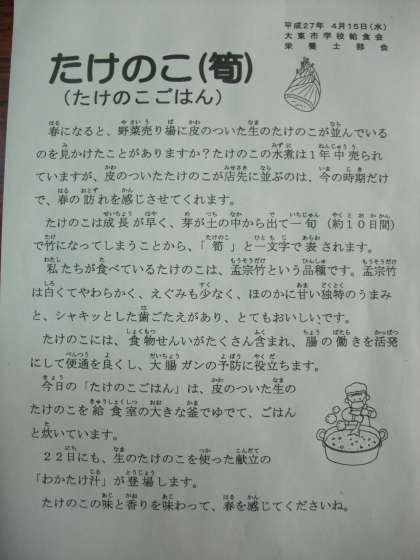 平成27年 4月15日(水)
大東市学校給食会
栄養士部会
たけのこ(筍)
(たけのこごはん)
春になると、野菜売り場に皮のついた生のたけのこが並んでいる
のを見かけたことがありますか？たけのこの水煮は1年中売られ
ていますが、皮のついたたけのこが店先に並ぶのは、今の時期だけ
で、春の訪れを感じさせてくれます。
たけのこは成長が早く、芽が土の中から出て一旬(約10日間)
で竹になってしまうことから、「筍」と一文字で表されます。
私たちが食べているたけのこは、孟宗竹という品種です。孟宗竹
は白くてやわらかく、えぐみも少なく、ほのかに甘い独特のうまみ
と、シャキッとした歯ごたえがあり、とてもおいしいです。
たけのこには、食物せんいがたくさん含まれ、腸の働きを活発
にして便通を良くし、大腸ガンの予防に役立ちます。
今日の「たけのこごはん」は、皮のついた生の
たけのこを給食室の大きな釜でゆでて、ごはん
と炊いています。
22日にも、生のたけのこを使った献立の
「わかたけ汁」が登場します。
たけのこの味と香りを味わって、春を感じてくださいね。